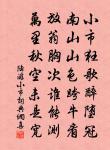 小市狂歌醉墮冠
南山山色跨牛看
放翁胸次誰能測
萬里秋空未是寬
陸游小市詞典網